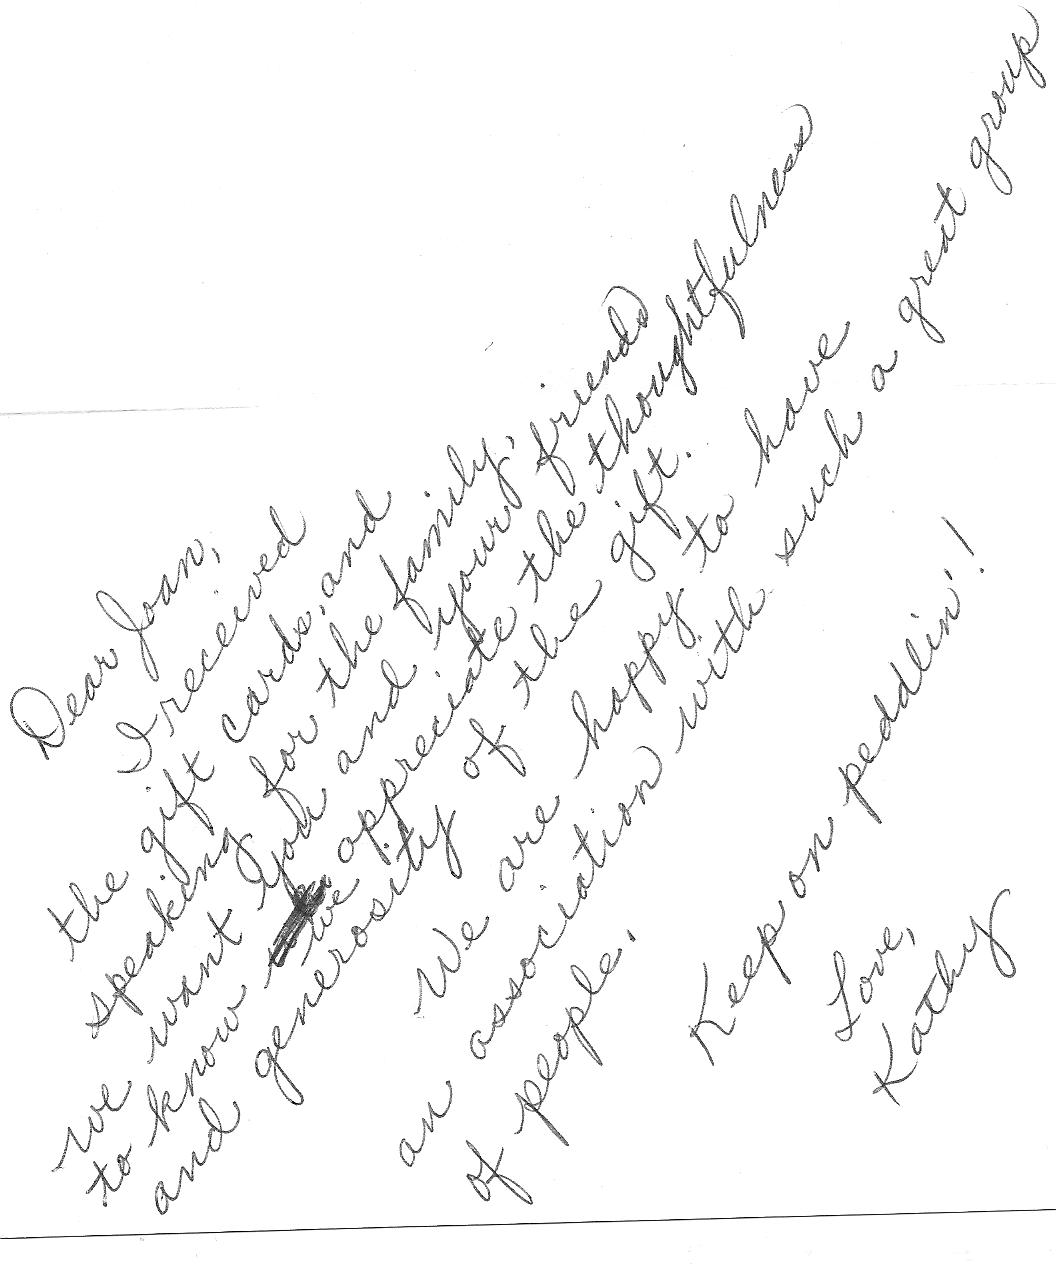 Dear Joan,
I received
the gift cards, and
speaking for the family,
we want you and your friends
to know we appreciate the thoughtfulness
and generosity of the gift.
We are happy to have
an association with such a great group
of people.
Keep on peddlin'!
Love,
Kathy